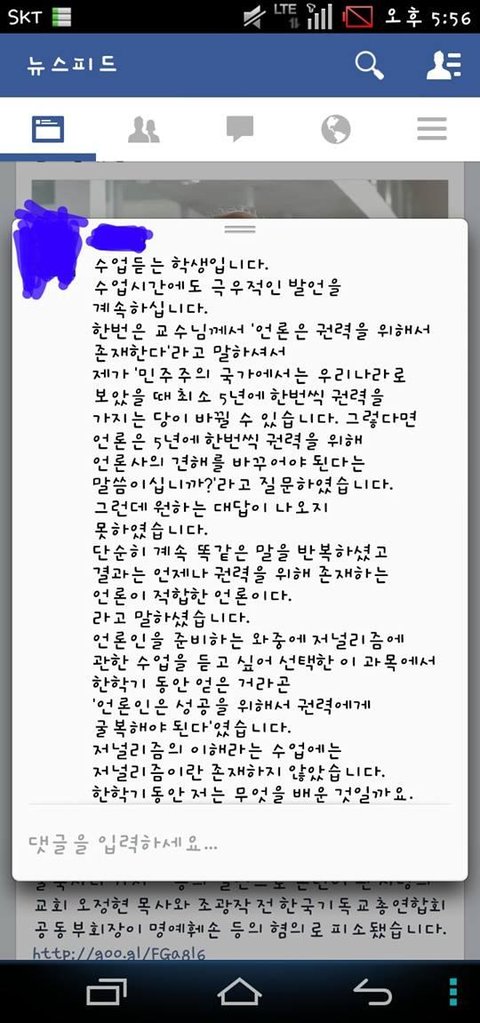 SKT LTE 오후 5:56
뉴스피드
수업듣는 학생입니다.
수업시간에도 극우적인 발언을
계속하십니다.
한번은 교수님께서 '언론은 권력을 위해서
존재한다'라고 말하셔서
제가 '민주주의 국가에서는 우리나라로
보았을 때 최소 5년에 한번씩 권력을
가지는 당이 바뀔 수 있습니다. 그렇다면
언론은 5년에 한번씩 권력을 위해
언론사의 견해를 바꾸어야 된다는
말씀이십니까?'라고 질문하였습니다.
그런데 원하는 대답이 나오지
못하였습니다.
단순히 계속 똑같은 말을 반복하셨고
결과는 언제나 권력을 위해 존재하는
언론이 적합한 언론이다.
라고 말하셨습니다.
언론인을 준비하는 와중에 저널리즘에
관한 수업을 듣고 싶어 선택한 이 과목에서
한학기 동안 얻은 거라곤
'언론인은 성공을 위해서 권력에게
굴복해야 된다'였습니다.
저널리즘의 이해라는 수업에는
저널리즘이란 존재하지 않았습니다.
한학기동안 저는 무엇을 배운 것일까요.
댓글을 입력하세요...
교회 오정현 목사와 조광작 전 한국기독교총연합회
공동부회장이 명예훼손 등의 혐의로 피소됐습니다.
http://goo.gl/FGa8l6